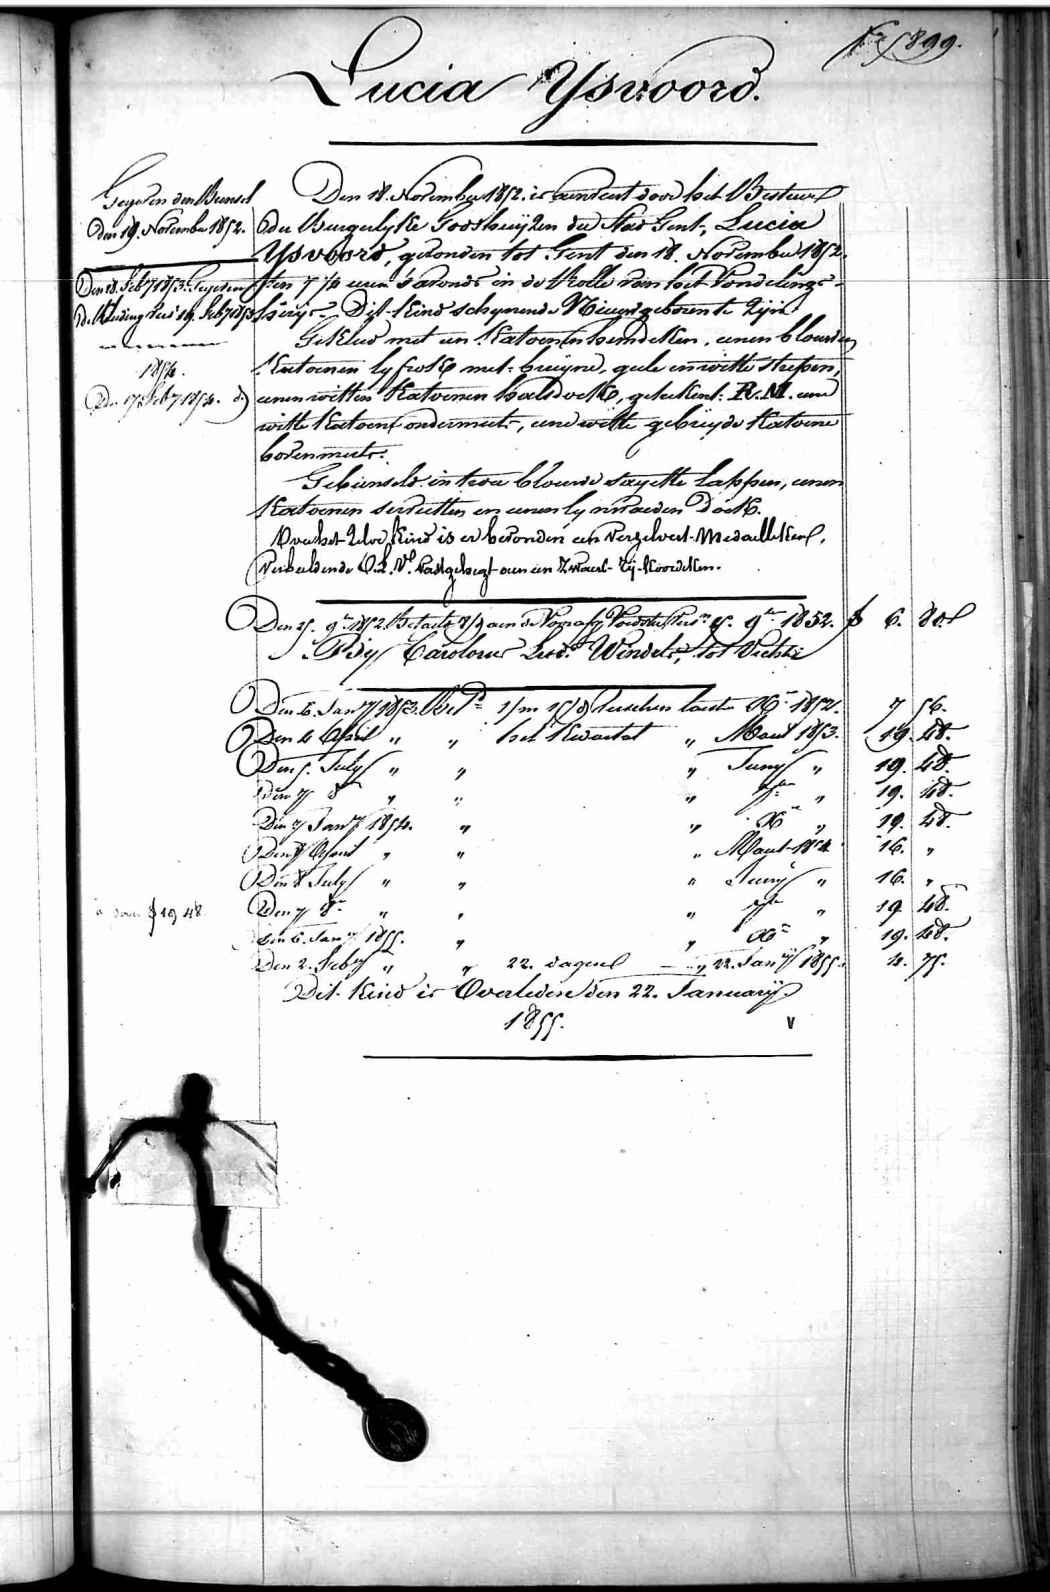 F° 899.
Lucia Ysvoord.
Gegeven den Bunsel
den 19. November 1852.
Den 18. November 1852. is aenveird door het Bestuur
der Burgerlyke Godshuyzen der Stad Gent, Lucia
Ysvoord, gevonden tot Gent den 18. November 1852.
ten 7 1/4 uren s'avonds in de Rolle van het Vondelings-
huys. Dit Kind schynende Nieuwgeboren te Zyn
Den 18. Feb^y 1853. Gegeven
de Kleeding
1854.
Den 17. Feb^y 1854. d°
Gekleed met een Katoenen hemdeken, eenen blauwen
Katoenen lyfrok met bruyne, geele en witte strepen,
eenen witten Katoenen halsdoek, geteekent: R.M. eene
witte Katoene ondermuts, eene witte gebreyde Katoene
bovenmuts.
Gebunseld in twee blauwe sayette lappen, eenen
Katoenen servietten en eenen lynwaeden Doek.
Over het Zelve Kind is er bevonden een verzilvert Medailleken,
Verbeeldende O.L.V. vastgehegt aen een Zwart Zy Koordeken.
Den 25. 9^bre 1852. Betaelt aen de Voedster 9^bre 1852. f 6. 80
Carolous Lud. Windels, tot Vichte
Den 6. Jan^y 1853. 1/m 15/d tusschen laest X^bre 1852. 7 56.
Den 4 April " " het Kwartal " Maart 1853. 19. 48.
Den 5. July " " " Juny " 19. 48.
Den 7 8^bre " " " 7^bre " 19. 48.
Den 7 Jan^y 1854. " " X^bre " 19. 48.
Den 8 April " " " Maart 1854 16. "
Den 8 July " " " Juny " 16. "
19 48.
Den 7 8^bre " " " 7^bre " 19 48.
Den 6. Jan^y 1855. " " X^bre " 19. 48.
Den 2. Feb^y " " 22. dagen " 22. Jan^y 1855. 4. 75.
Dit Kind is Overleden den 22. January
1855. v